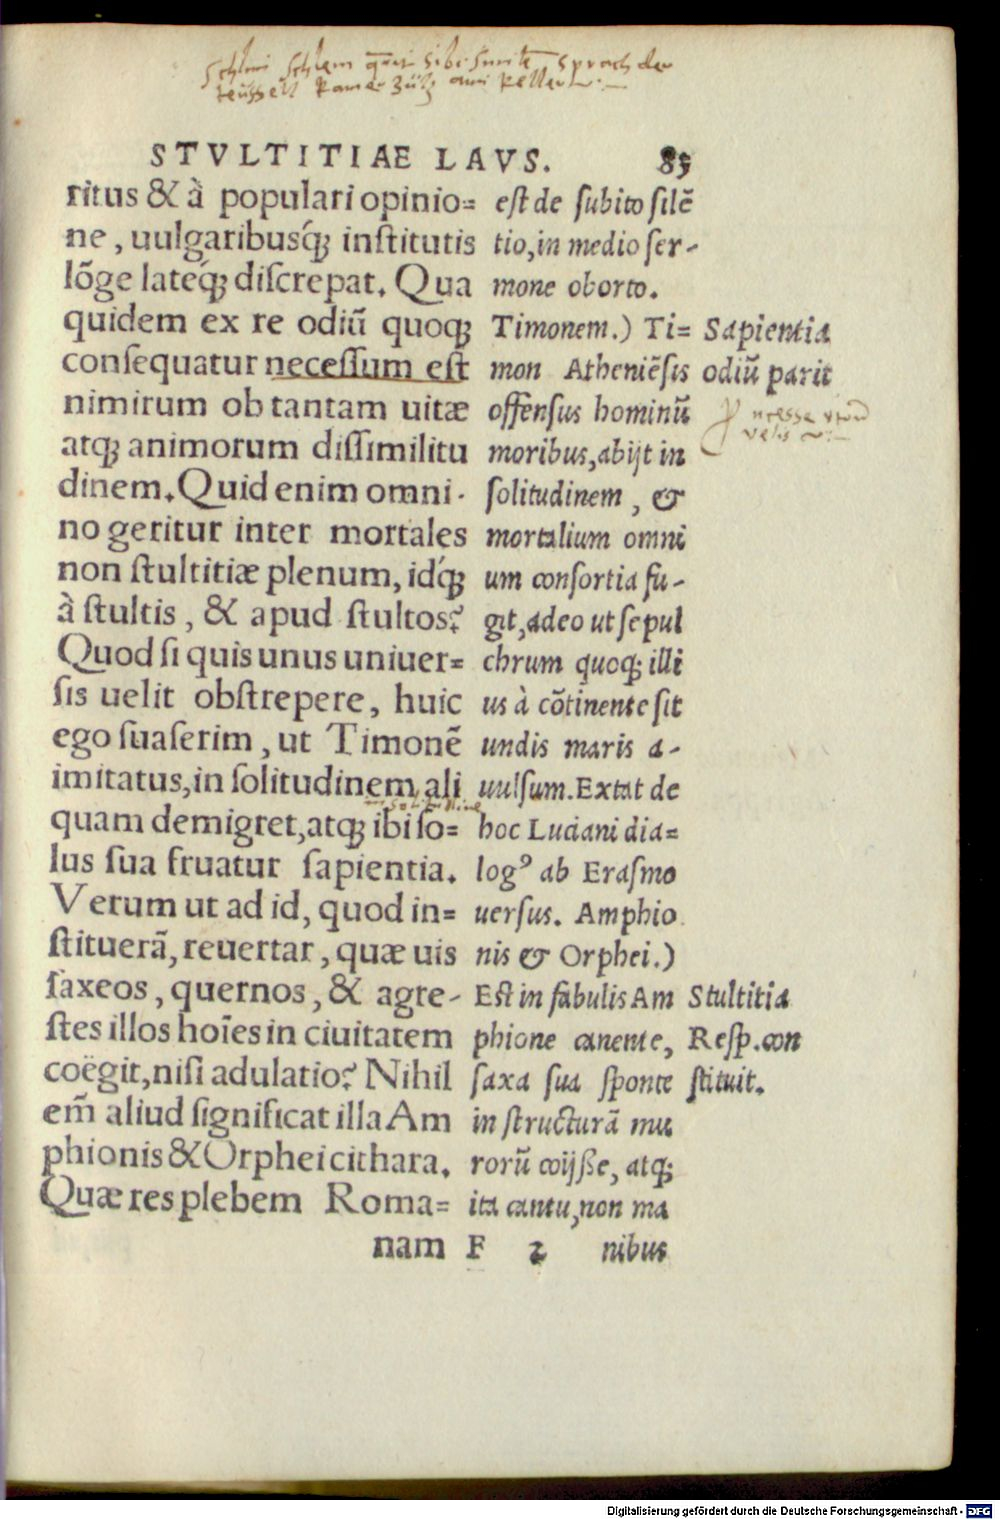 sprach der
STVLTITIAE LAVS. 83
ritus & à populari opinio=
ne, uulgaribusq́ꝫ inſtitutis
lõge lateq́ꝫ diſcrepat. Qua
quidem ex re odiũ quoqꝫ
conſequatur neceſſum eſt
nimirum ob tantam uitæ
atqꝫ animorum diſſimilitu
dinem. Quid enim omni-
no geritur inter mortales
non ſtultitiæ plenum, idq́ꝫ
à ſtultis, & apud ſtultos?
Quod ſi quis unus uniuer=
ſis uelit obſtrepere, huic
ego ſuaſerim, ut Timonẽ
imitatus, in ſolitudinem ali
quam demigret, atqꝫ ibi ſo=
lus ſua fruatur ſapientia.
Verum ut ad id, quod in=
ſtituerã, reuertar, quæ uis
ſaxeos, quernos, & agre-
ſtes illos hoĩes in ciuitatem
coëgit, niſi adulatio? Nihil
em̃ aliud ſignificat illa Am
phionis & Orphei cithara.
Quæ res plebem Roma=
nam
eſt de ſubito ſilẽ
tio, in medio ſer-
mone oborto.
Timonem.) Ti=
mon Atheniẽſis
offenſus hominũ
moribus, abijt in
ſolitudinem, &
mortalium omni
um conſortia fu-
git, adeo ut ſepul
chrum quoqꝫ illi
us à cõtinente ſit
undis maris a-
uulſum. Extat de
hoc Luciani dia=
logꝰ ab Eraſmo
uerſus. Amphio
nis & Orphei.)
Eſt in fabulis Am
phione canente,
ſaxa ſua ſponte
in ſtructurã mu
rorũ coijſſe, atqꝫ
ita cantu, non ma
F 2 nibus
Sapientia
odiũ parit
Stultitia
Reſp. con
ſtituit.
Digitalisierung gefördert durch die Deutsche Forschungsgemeinschaft - DFG